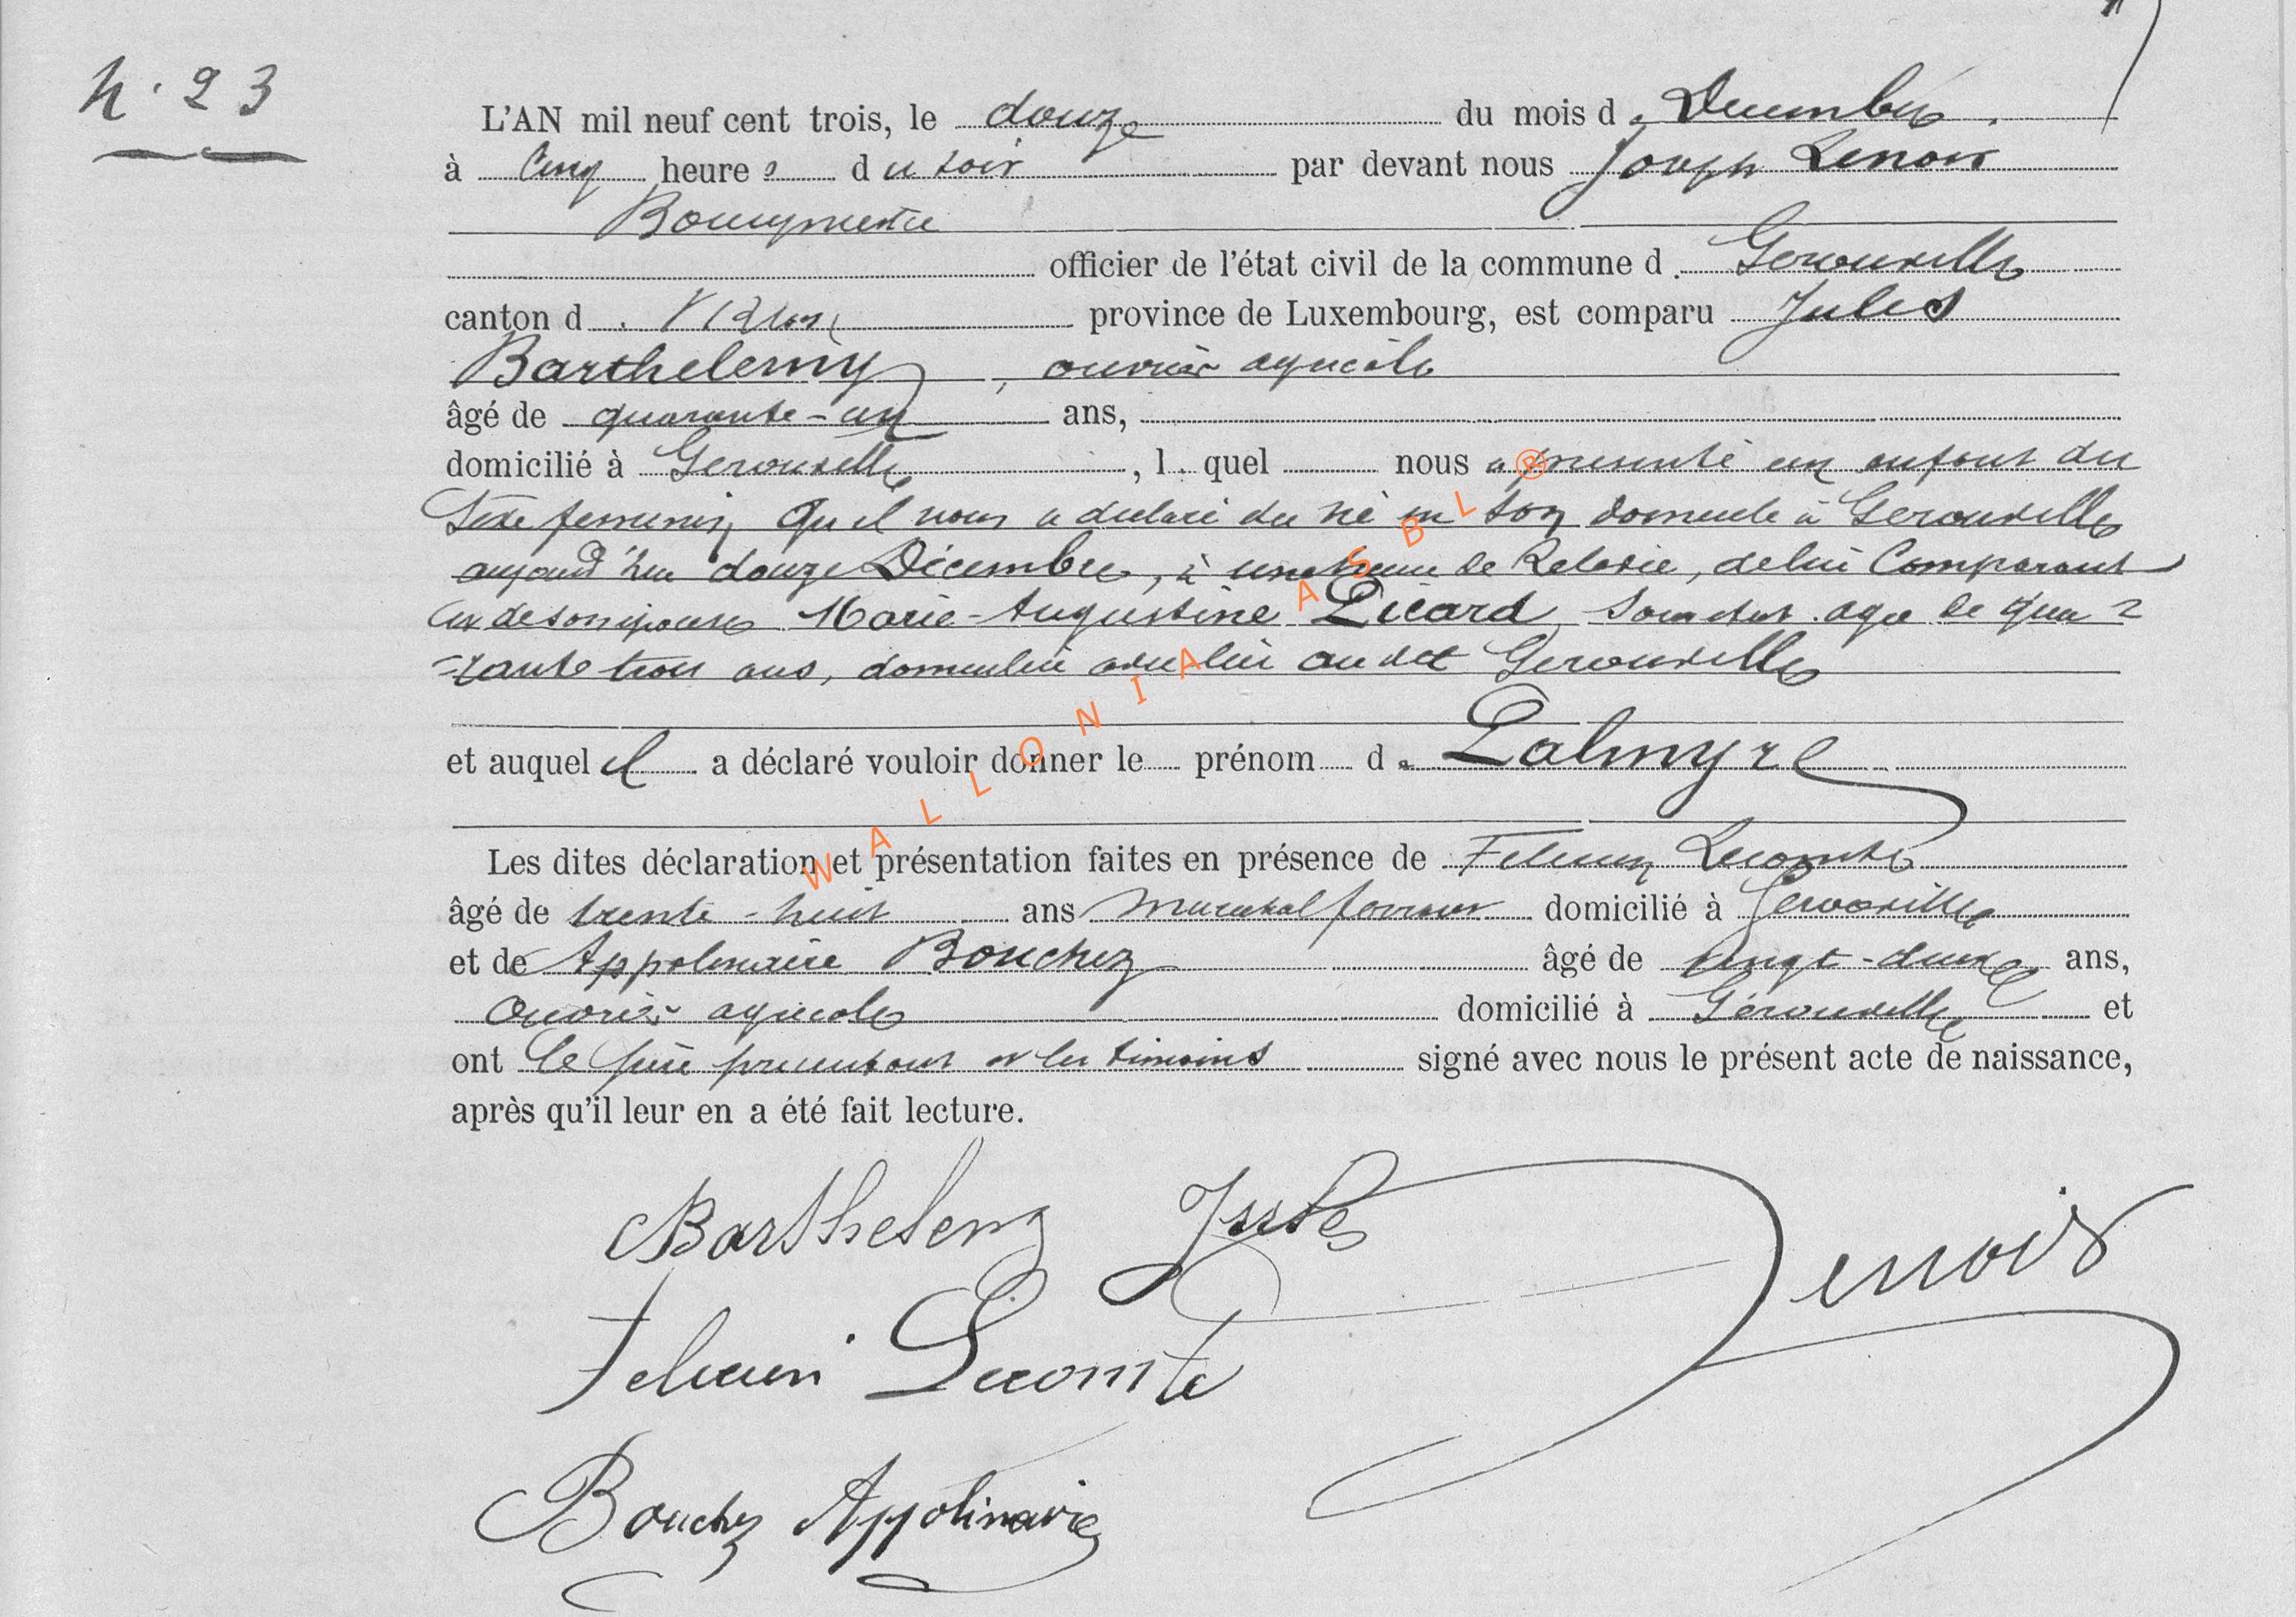 N. 23
L'AN mil neuf cent trois, le douze du mois de Décembre
à cinq heures du soir par devant nous Joseph Lenoir
Bourgmestre
officier de l'état civil de la commune de Gerouville
canton de Virton province de Luxembourg, est comparu Jules
Barthelemy, ouvrier agricole
âgé de quarante-un ans,
domicilié à Gerouville, lequel nous a présenté un enfant du
sexe feminin qu'il nous a déclaré être né en son domicile à Gerouville
aujourd'hui douze Décembre, à une heure de Relevée, de lui Comparant
et de son épouse Marie-Augustine Picard, agée de qua=
=rante trois ans, domiciliée avec lui au dit Gerouville
et auquel il a déclaré vouloir donner le prénom de Palmyre
Les dites déclaration et présentation faites en présence de Felicien Lecomte
âgé de trente-huit ans marechal ferrant domicilié à Gerouville
et de Appolinaire Bouchez âgé de vingt-deux ans,
ouvrier agricole domicilié à Gérouville et
ont le père présentant et les témoins signé avec nous le présent acte de naissance,
après qu'il leur en a été fait lecture.
Barthelemy Jules
Lenoir
Felicien Lecomte
Bouchez Appolinaire
WALLONIA ASBL ®